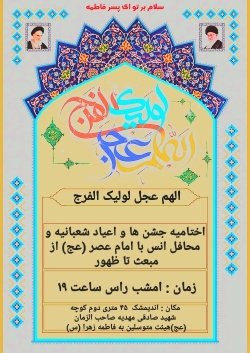 سلام بر تو ای پسر فاطمه
اللهم عجل لولیک الفرج
الهم عجل لولیک الفرج
اختامیه جشن ها و اعیاد شعبانیه و
محافل انس با امام عصر (عج) از
مبعث تا ظهور
زمان : امشب راس ساعت ۱۹
مکان : اندیمشک ۴۵ متری دوم کوچه
شهید صادقی مهدیه صاحب الزمان
(عج)هیئت متوسلین به فاطمه زهرا (س)